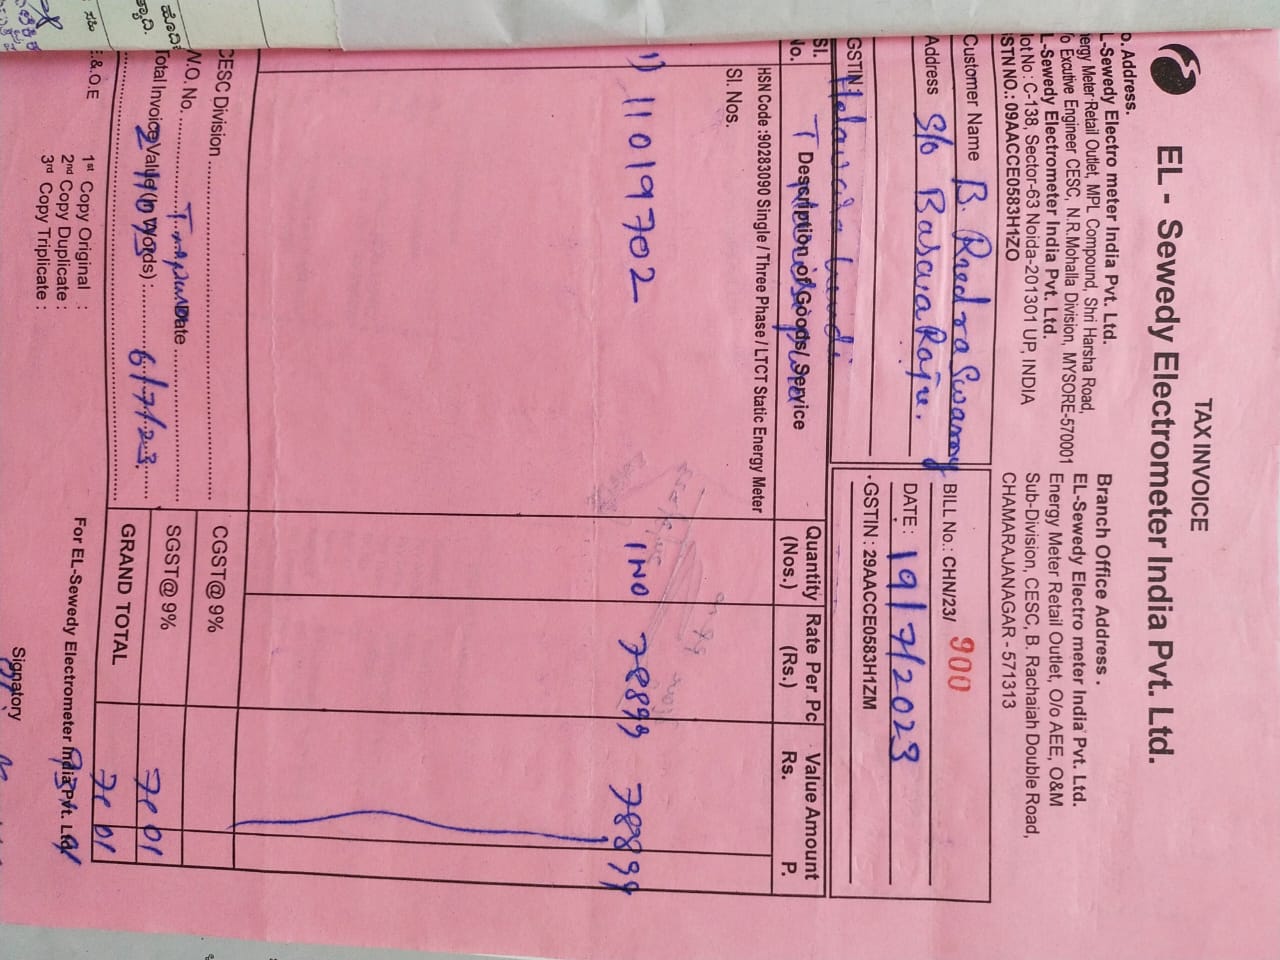 TAX INVOICE
EL - Sewedy Electrometer India Pvt. Ltd.
o. Address.
L-Sewedy Electro meter India Pvt. Ltd.
nergy Meter Retail Outlet, MPL Compound, Shri Harsha Road,
/o Excutive Engineer CESC, N.R.Mohalla Division, MYSORE-570001
L-Sewedy Electrometer India Pvt. Ltd.
lot No : C-138, Sector-63 Noida-201301 UP, INDIA
STN NO. : 09AACCE0583H1ZO
Branch Office Address .
EL-Sewedy Electro meter India Pvt. Ltd.
Energy Meter Retail Outlet, O/o AEE, O&M
Sub-Division, CESC, B. Rachaiah Double Road,
CHAMARAJANAGAR - 571313
Customer Name B. Rudra Swamy
Address S/o Basava Raju.
GSTIN :
BILL No.: CHN/23/ 900
DATE : 19/7/2023
GSTIN : 29AACCE0583H1ZM
Sl. No.
Description of Goods/ Service
Quantity (Nos.)
Rate Per Pc (Rs.)
Value Amount
Rs.
P.
HSN Code :90283090 Single / Three Phase / LTCT Static Energy Meter
Sl. Nos.
1) 11019702 1NO 78899 78899
CESC Division
W.O. No. Date
Total Invoice Value (In Words) : 6/7/23.
CGST@ 9%
SGST@ 9% 7101
GRAND TOTAL 7101
E.& O.E
1st Copy Original :
2nd Copy Duplicate :
3rd Copy Triplicate :
For EL-Sewedy Electrometer India Pvt. Ltd.
Signatory